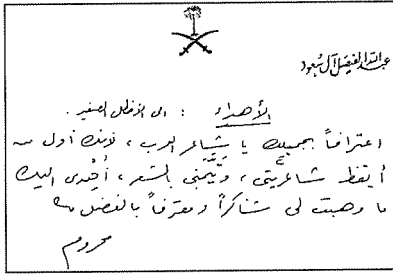 عبدالله الفيصل آل سعود
الأهداء : الى الأخطل الصغير .
اعترافاً بجميلك يا شاعر العرب ، لأنك أول من
أيقظ شاعريتي ، وتيّمني بالشعر ، أُهدى اليك
ما وهبت لى شاكراً ومعترفاً بالفضل منك
محروم